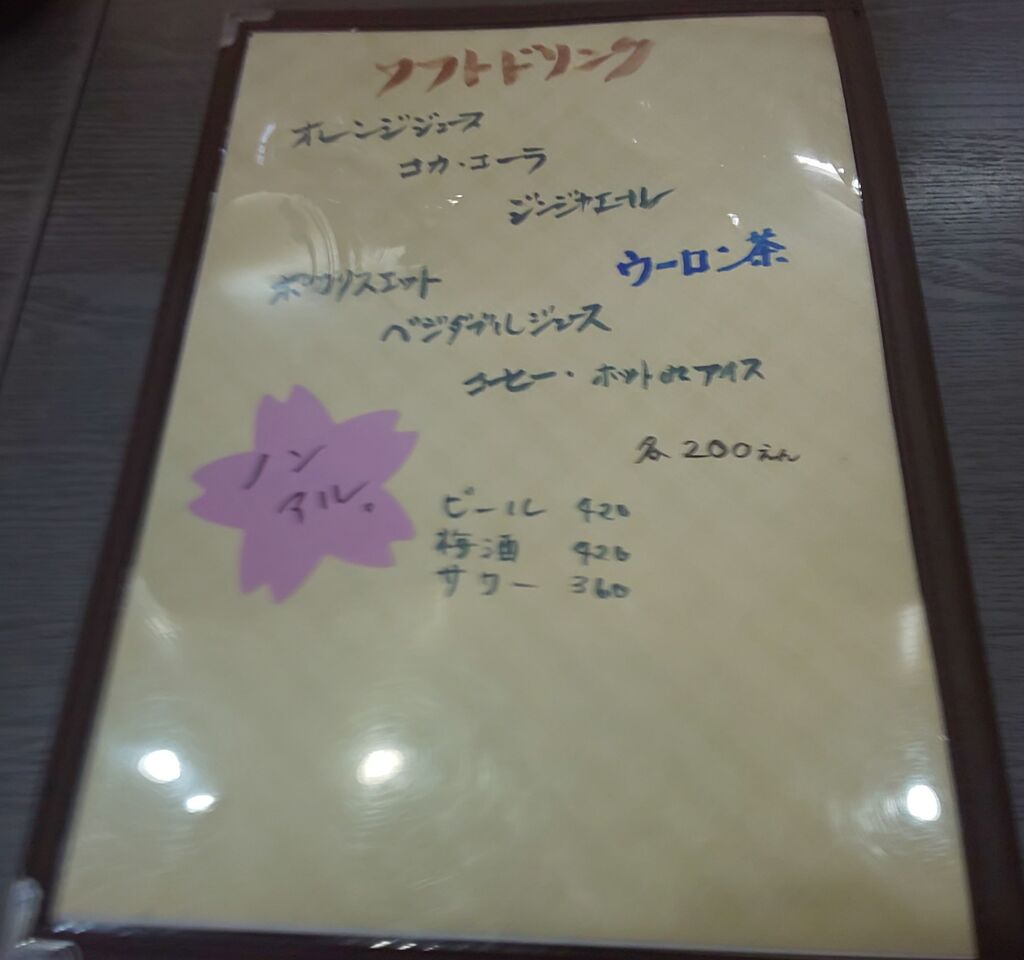 ソフトドリンク
オレンジジュース
コカ・コーラ
ジンジャエール
ウーロン茶
ポカリスエット
ベジタブルジュース
コーヒー・ホット or アイス
各 200えん
ノン
アル。
ビール 420
梅酒 420
サワー 360